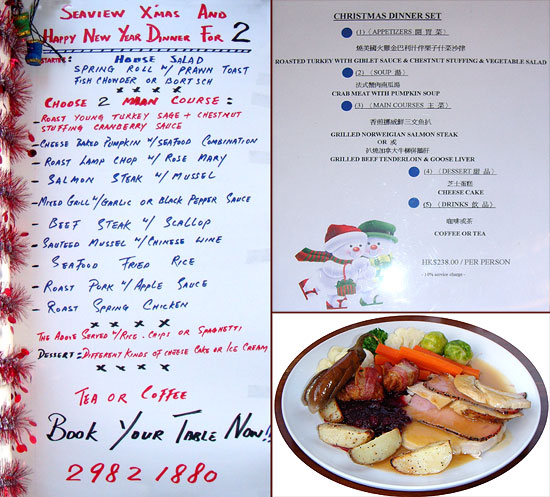 SEAVIEW X'MAS AND
HAPPY NEW YEAR DINNER FOR 2
STARTER: HOUSE SALAD
SPRING ROLL W/ PRAWN TOAST
FISH CHOWDER OR BORTSCH
CHOOSE 2 MAIN COURSE:
- ROAST YOUNG TURKEY SAGE + CHESTNUT
STUFFING CRANBERRY SAUCE
- CHEESE BAKED PUMPKIN W/ SEAFOOD COMBINATION
- ROAST LAMP CHOP W/ ROSE MARY
- SALMON STEAK W/ MUSSEL
- MIXED GRILL W/ GARLIC OR BLACK PEPPER SAUCE
- BEEF STEAK W/ SCALLOP
- SAUTEED MUSSEL W/ CHINESE WINE
- SEAFOOD FRIED RICE
- ROAST PORK W/ APPLE SAUCE
- ROAST SPRING CHICKEN
x x x x
THE ABOVE SERVED W/ RICE, CHIPS OR SPAGHETTI
DESSERT: DIFFERENT KINDS OF CHEESE CAKE OR ICE CREAM
x x x x
TEA OR COFFEE
BOOK YOUR TABLE NOW!!
2982 1880
CHRISTMAS DINNER SET
(1) (APPETIZERS 開胃菜)
燒美國火雞金巴利汁伴栗子什菜沙律
ROASTED TURKEY WITH GIBLET SAUCE & CHESTNUT STUFFING & VEGETABLE SALAD
(2) (SOUP 湯)
法式蟹肉南瓜湯
CRAB MEAT WITH PUMPKIN SOUP
(3) (MAIN COURSES 主菜)
香煎挪威鮮三文魚扒
GRILLED NORWEIGIAN SALMON STEAK
OR 或
扒燒加拿大牛柳併鵝肝
GRILLED BEEF TENDERLOIN & GOOSE LIVER
(4) (DESSERT 甜品)
芝士蛋糕
CHEESE CAKE
(5) (DRINKS 飲品)
咖啡或茶
COFFEE OR TEA
HK$238.00 / PER PERSON
- 10% service charge -